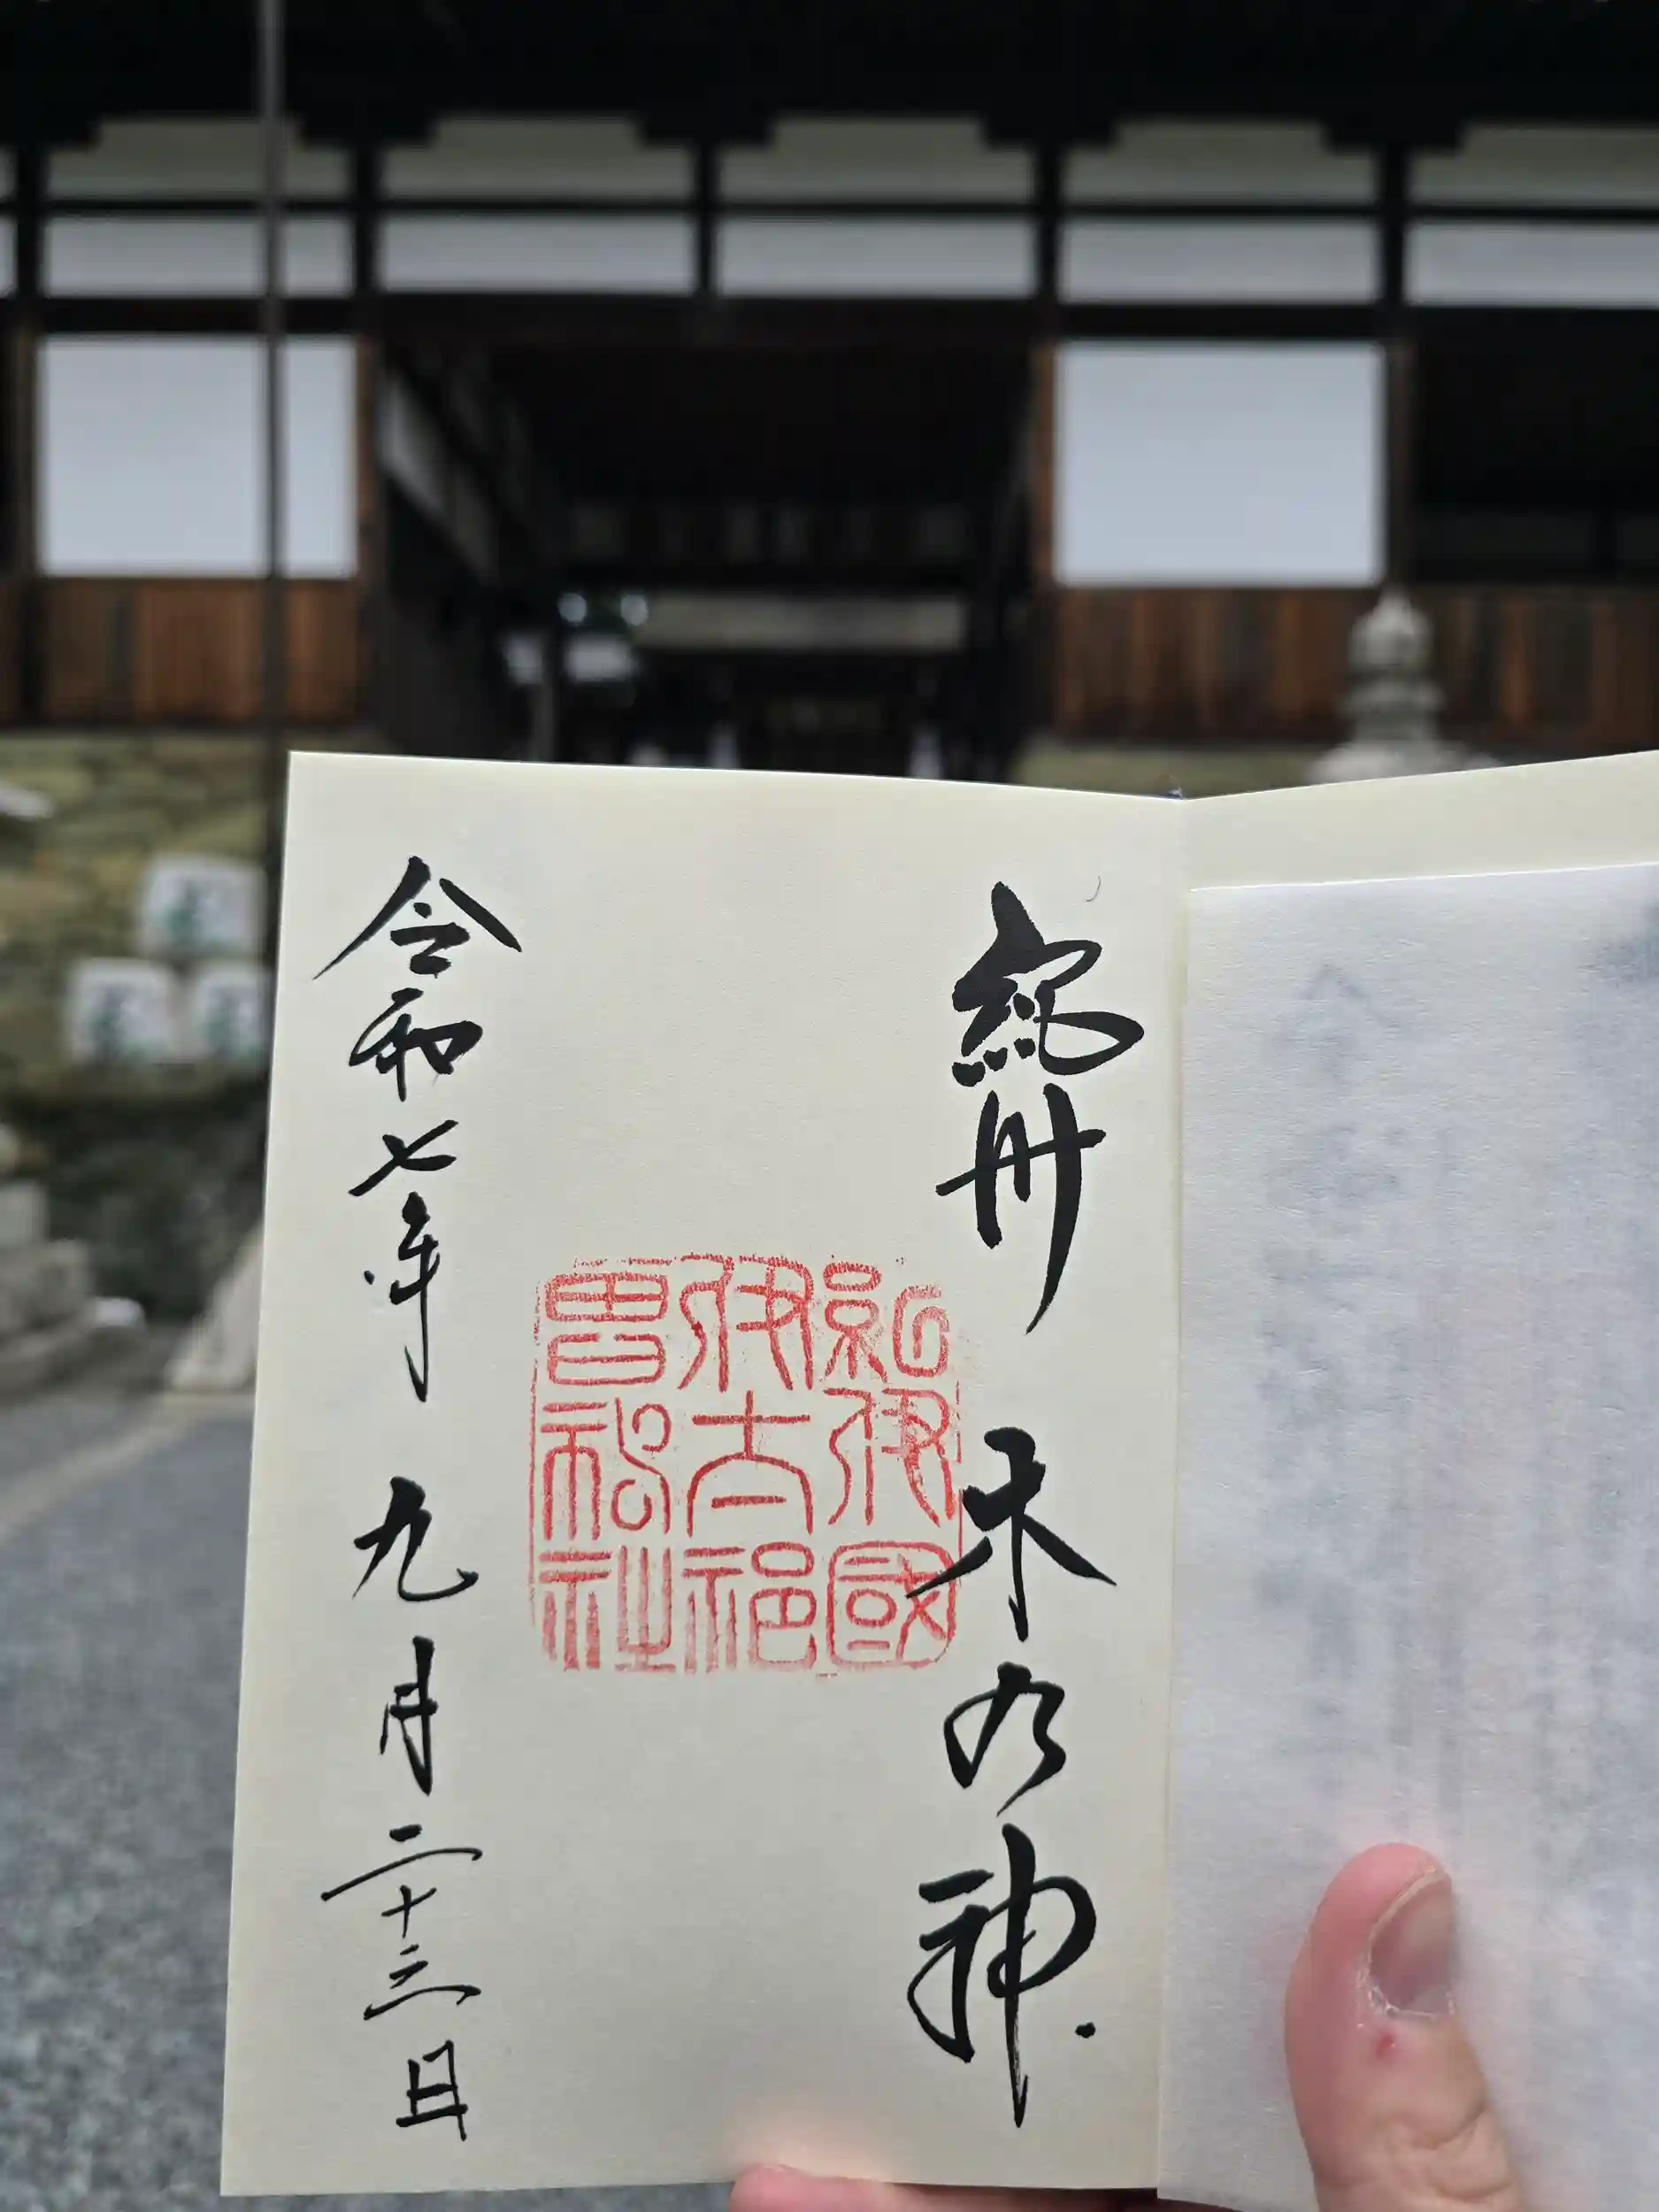 紀州 木の神
紀伊國
伊太祁
曽神社
令和七年 九月二十三日